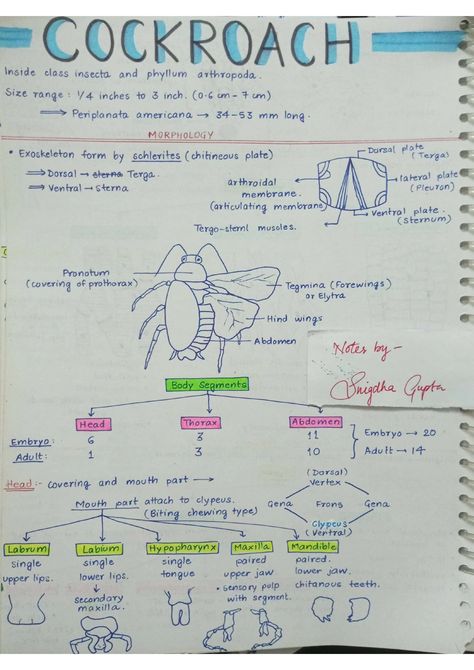 COCKROACH
Inside class insecta and phyllum arthropoda.
Size range : 1/4 inches to 3 inch. (0.6 cm - 7 cm)
⟹ Periplanata americana → 34-53 mm long.
MORPHOLOGY
• Exoskeleton form by schlerites (chitineous plate)
⟹ Dorsal → sterna Terga.
⟹ Ventral → sterna
Dorsal plate
(Terga)
lateral plate
(Pleuron)
arthroidal
membrane.
(articulating membrane)
Ventral plate.
(Sternum)
Tergo-sternl muscles.
Pronotum
(covering of prothorax)
Tegmina (Forewings)
or Elytra
Hind wings
Abdomen
Notes by-
Snigdha Gupta
Body Segments
Head Thorax Abdomen
Embryo: 6 3 11 Embryo → 20
Adult: 1 3 10 Adult → 14
Head:- covering and mouth part →
(Dorsal)
Vertex
Gena Frons Gena
Clypeus
(Ventral)
Mouth part attach to clypeus.
(Biting chewing type)
Labrum Labium Hypopharynx Maxilla Mandible
single single single paired paired.
upper lips. lower lips. tongue upper jaw lower jaw.
secondary maxilla.
• Sensory pulp with segment.
chitanous teeth.